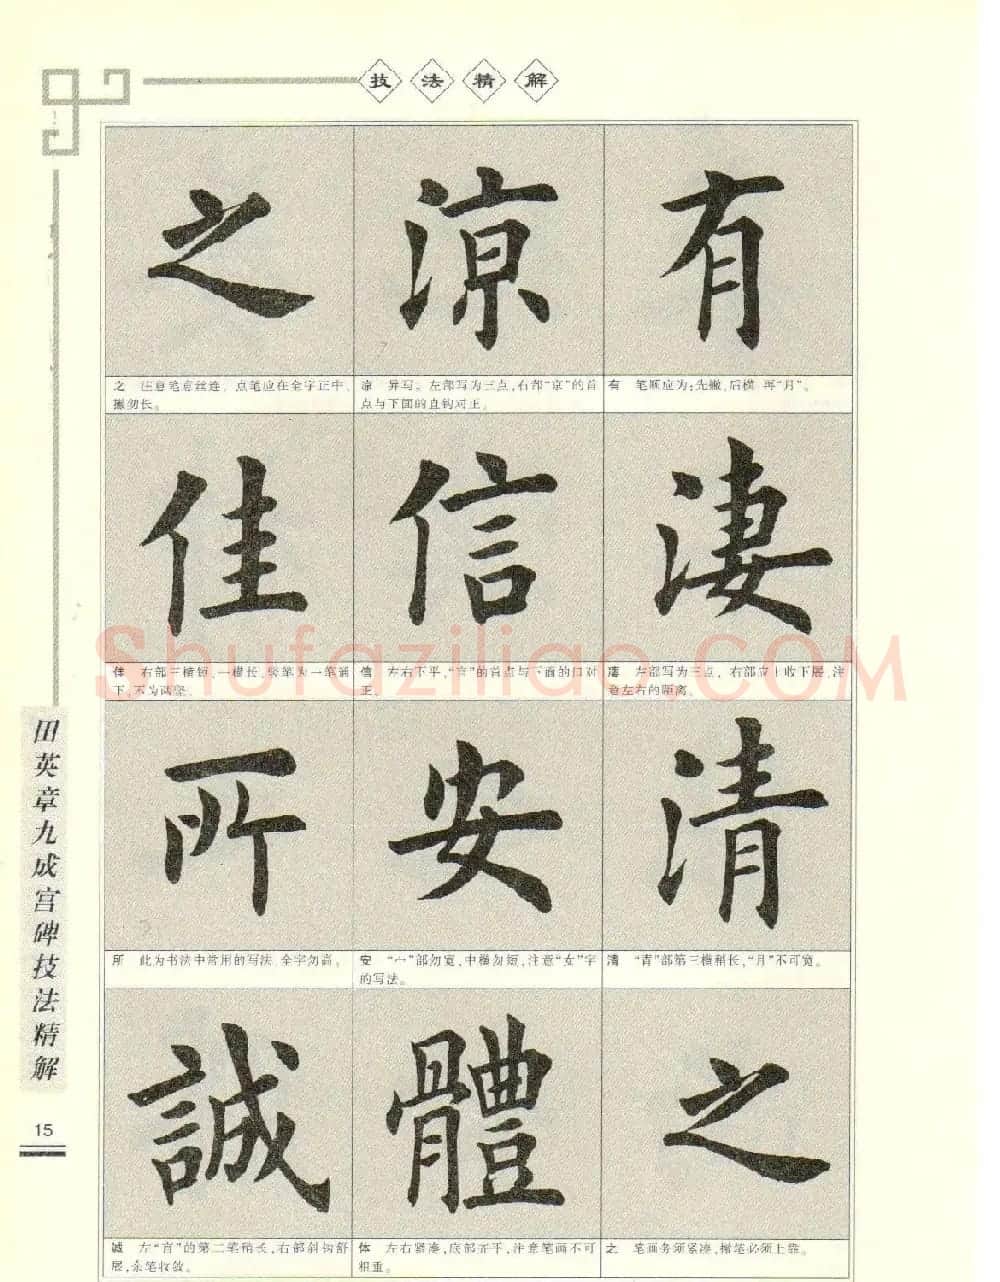 技法精解
之 涼 有
之 注意笔意丝连，点笔应在全字正中，
捺勿长。
凉 异写。左部写为三点，右部“京”的首
点与下面的直钩对正。
有 笔顺应为：先撇，后横，再“月”。
佳 信 淒
佳 右部三横短，一横长，竖笔为一笔通
下，不为两竖。
信 左右下平，“言”的首点与下面的口对
正。
凄 左部写为三点，右部应上收下展，注
意左右的距离。
Shufaziliao.COM
所 安 清
所 此为书法中常用的写法，全字勿高。
安 “宀”部勿宽，中横勿短，注意“女”字
的写法。
清 “青”部第三横稍长，“月”不可宽。
誠 體 之
诚 左“言”的第二笔稍长，右部斜钩舒
展，余笔收敛。
体 左右紧凑，底部齐平，注意笔画不可
粗重。
之 笔画务须紧凑，横笔必须上靠。
田英章九成宫碑技法精解
15